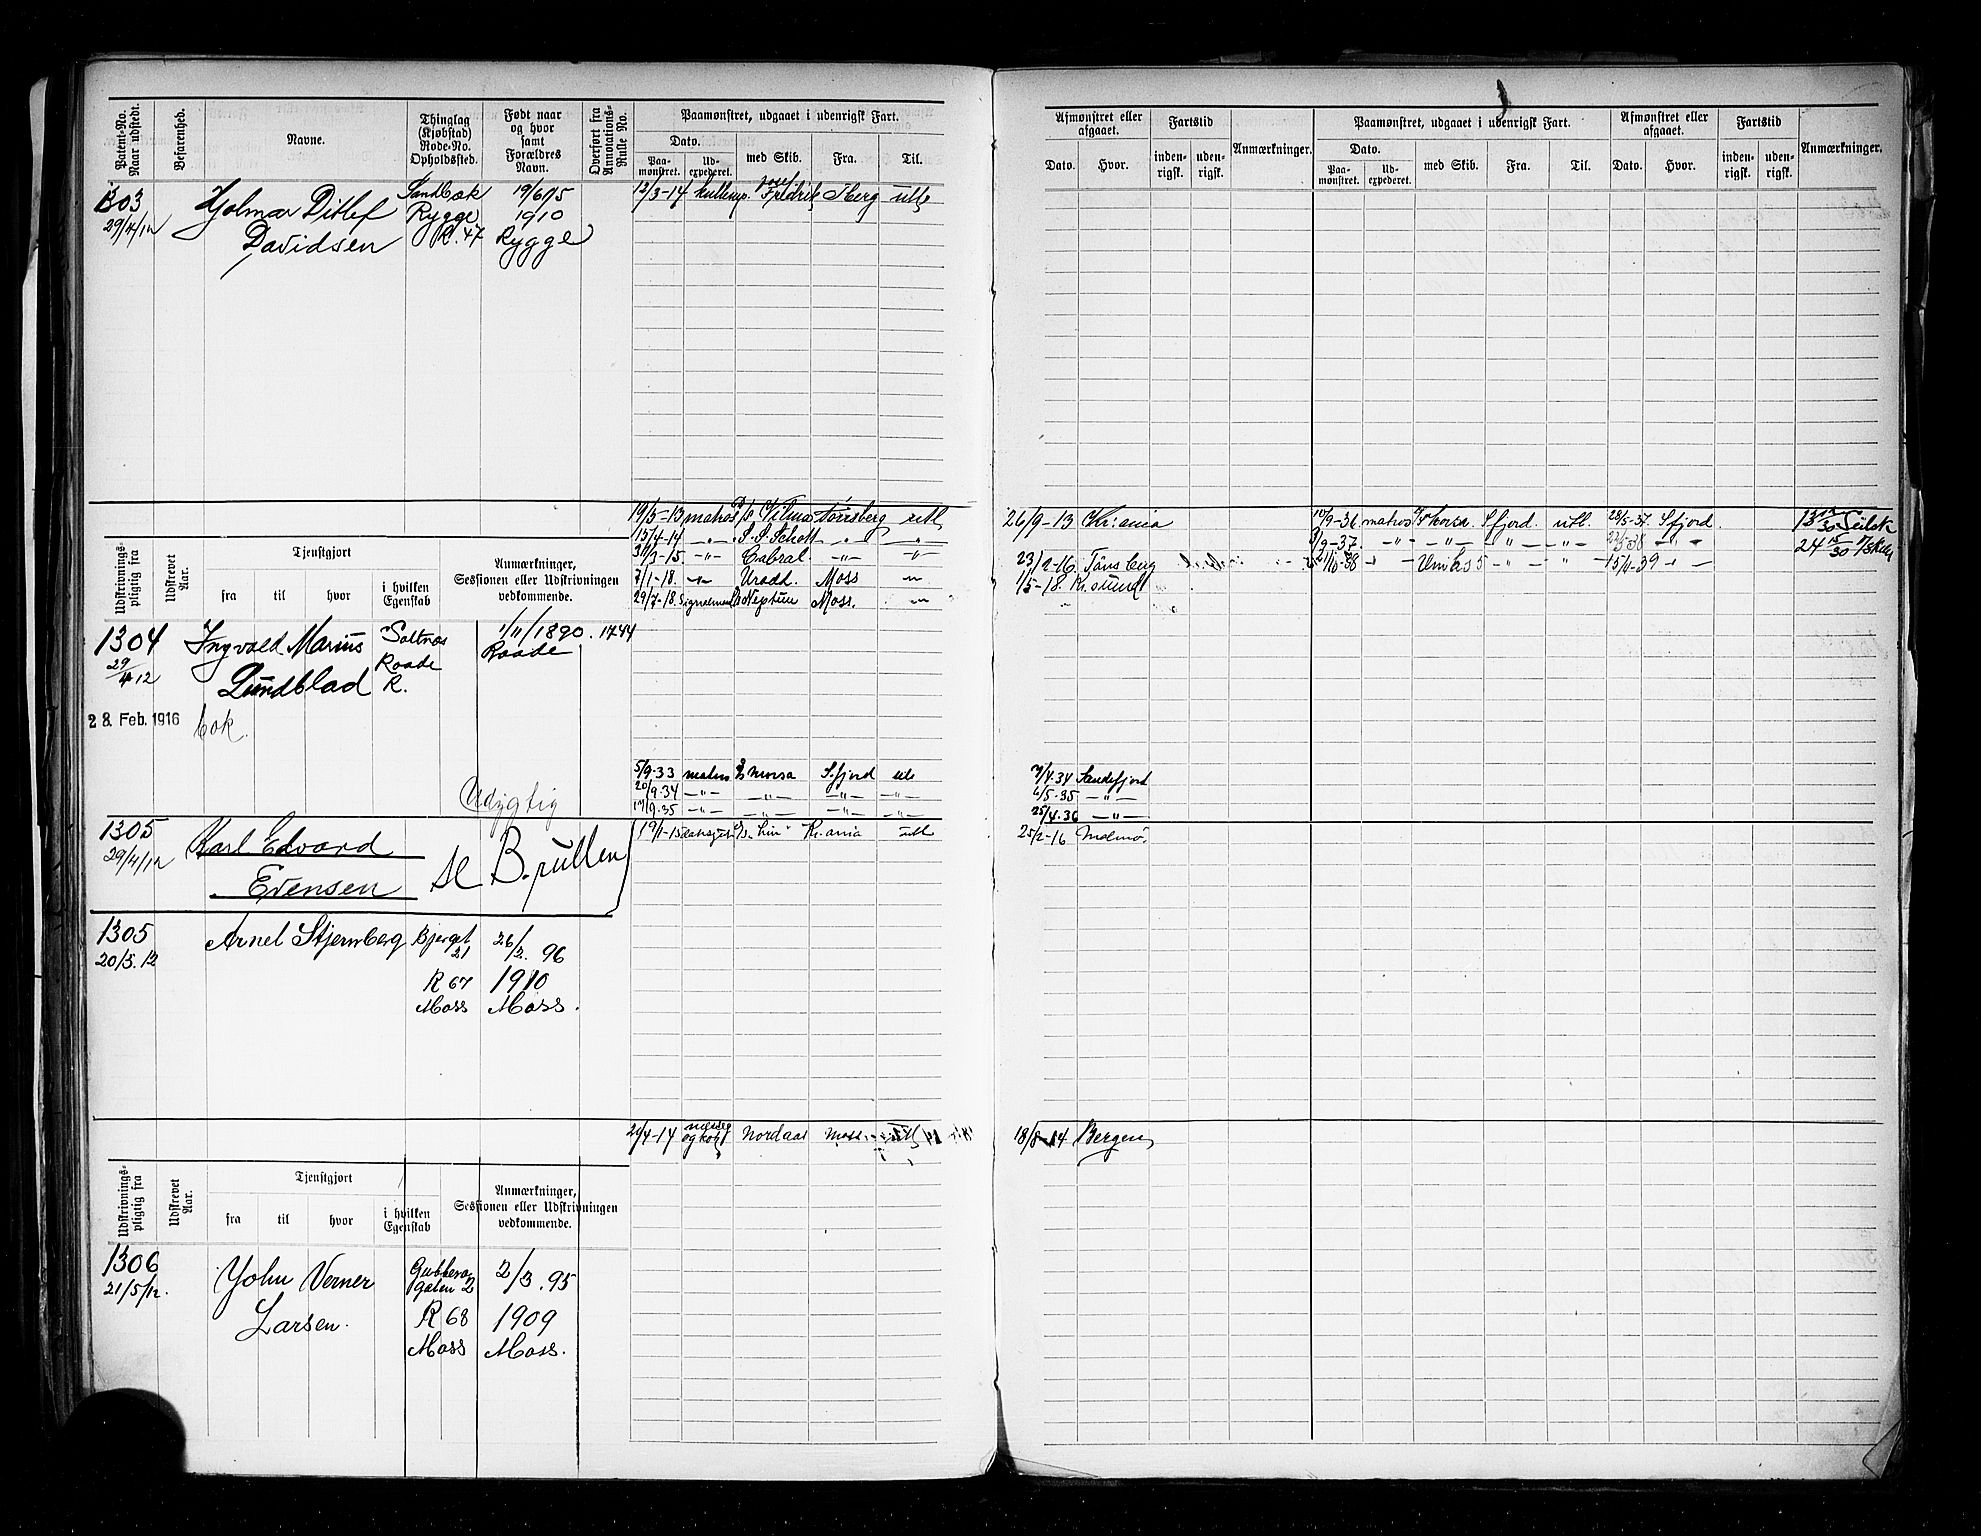 Patent-No. Naar udstedt.
Befarenhed.
Navne.
Thinglag (Kjøbstad) Rode-No. Opholdssted.
Født naar og hvor samt Forældres Navn.
Overført fra Annotations-Rulle No.
Paamønstret, udgaaet i udenrigsk Fart.
Dato.
Paa-mønstret.
Ud-expederet.
med Skib.
Fra.
Til.
Afmønstret eller afgaaet.
Dato.
Hvor.
Fartstid
inden-rigsk.
uden-rigsk.
Anmærkninger.
Paamønstret, udgaaet i udenrigsk Fart.
Dato.
Paa-mønstret.
Ud-expederet.
med Skib.
Fra.
Til.
Afmønstret eller afgaaet.
Dato.
Hvor.
Fartstid
inden-rigsk.
uden-rigsk.
Anmærkninger.
1303 Hjalmar Ditlef Sandbæk
29/4/12 Davidsen Rygge 1910
R. 47 Rygge
12/3-14 Fredrik utl
19/5-13 matros Vilma Tønsberg utl 26/9-13 Kr:ania
10/9-36 matros Thorsa Sfjord utl. 28/5-37 Sfjord.
15/4-14 -"- S. S. Schott -"- -"-
8/9-37. -"- -"- -"- -"-
31/3-15. -"- Cabral -"- -"- 23/2-16. Tønsberg
-"- Unitas 5 -"- -"- 15/4-39 -"-
7/1-18. -"- Uradd. Moss -"- 1/5-18. Kr.sund
29/7-18. Neptun Moss. -"-
Udskrivnings-pligtig fra
Udskrevet Aar.
Tjenstgjort
fra
til
hvor
i hvilken Egenskab
Anmærkninger, Sessionen eller Udskrivningen vedkommende.
1304 Ingvald Marius Saltnes 1/11/1890. 1744
29/4 12 Lundblad Raade Raade
R.
28. Feb. 1916 Cok.
Udygtig
5/9-33 matros Thorsa S.fjord utl 7/4.34 Sandefjord
20/9-34 -"- -"- -"- -"- 6/5-35 -"-
17/9-35 -"- -"- -"- 25/4.36 -"-
1305 Karl Edvard
29/4/12 Evensen
se B. rullen
19/1-15 Kr.ania utl 25/2-16 Malmø.
1305 Arnel Stjernberg Bjerget 21 26/2. 96
20/5.12 R 67 1910
Moss Moss.
21/4-14 Nordaas Moss utl 18/8-14 Bergen
Udskrivnings-pligtig fra
Udskrevet Aar.
Tjenstgjort
fra
til
hvor
i hvilken Egenskab
Anmærkninger, Sessionen eller Udskrivningen vedkommende.
1306 John Verner Gubbero- 2/3. 95
21/5/12. Larsen. gaten 2
R 68 1909
Moss Moss.